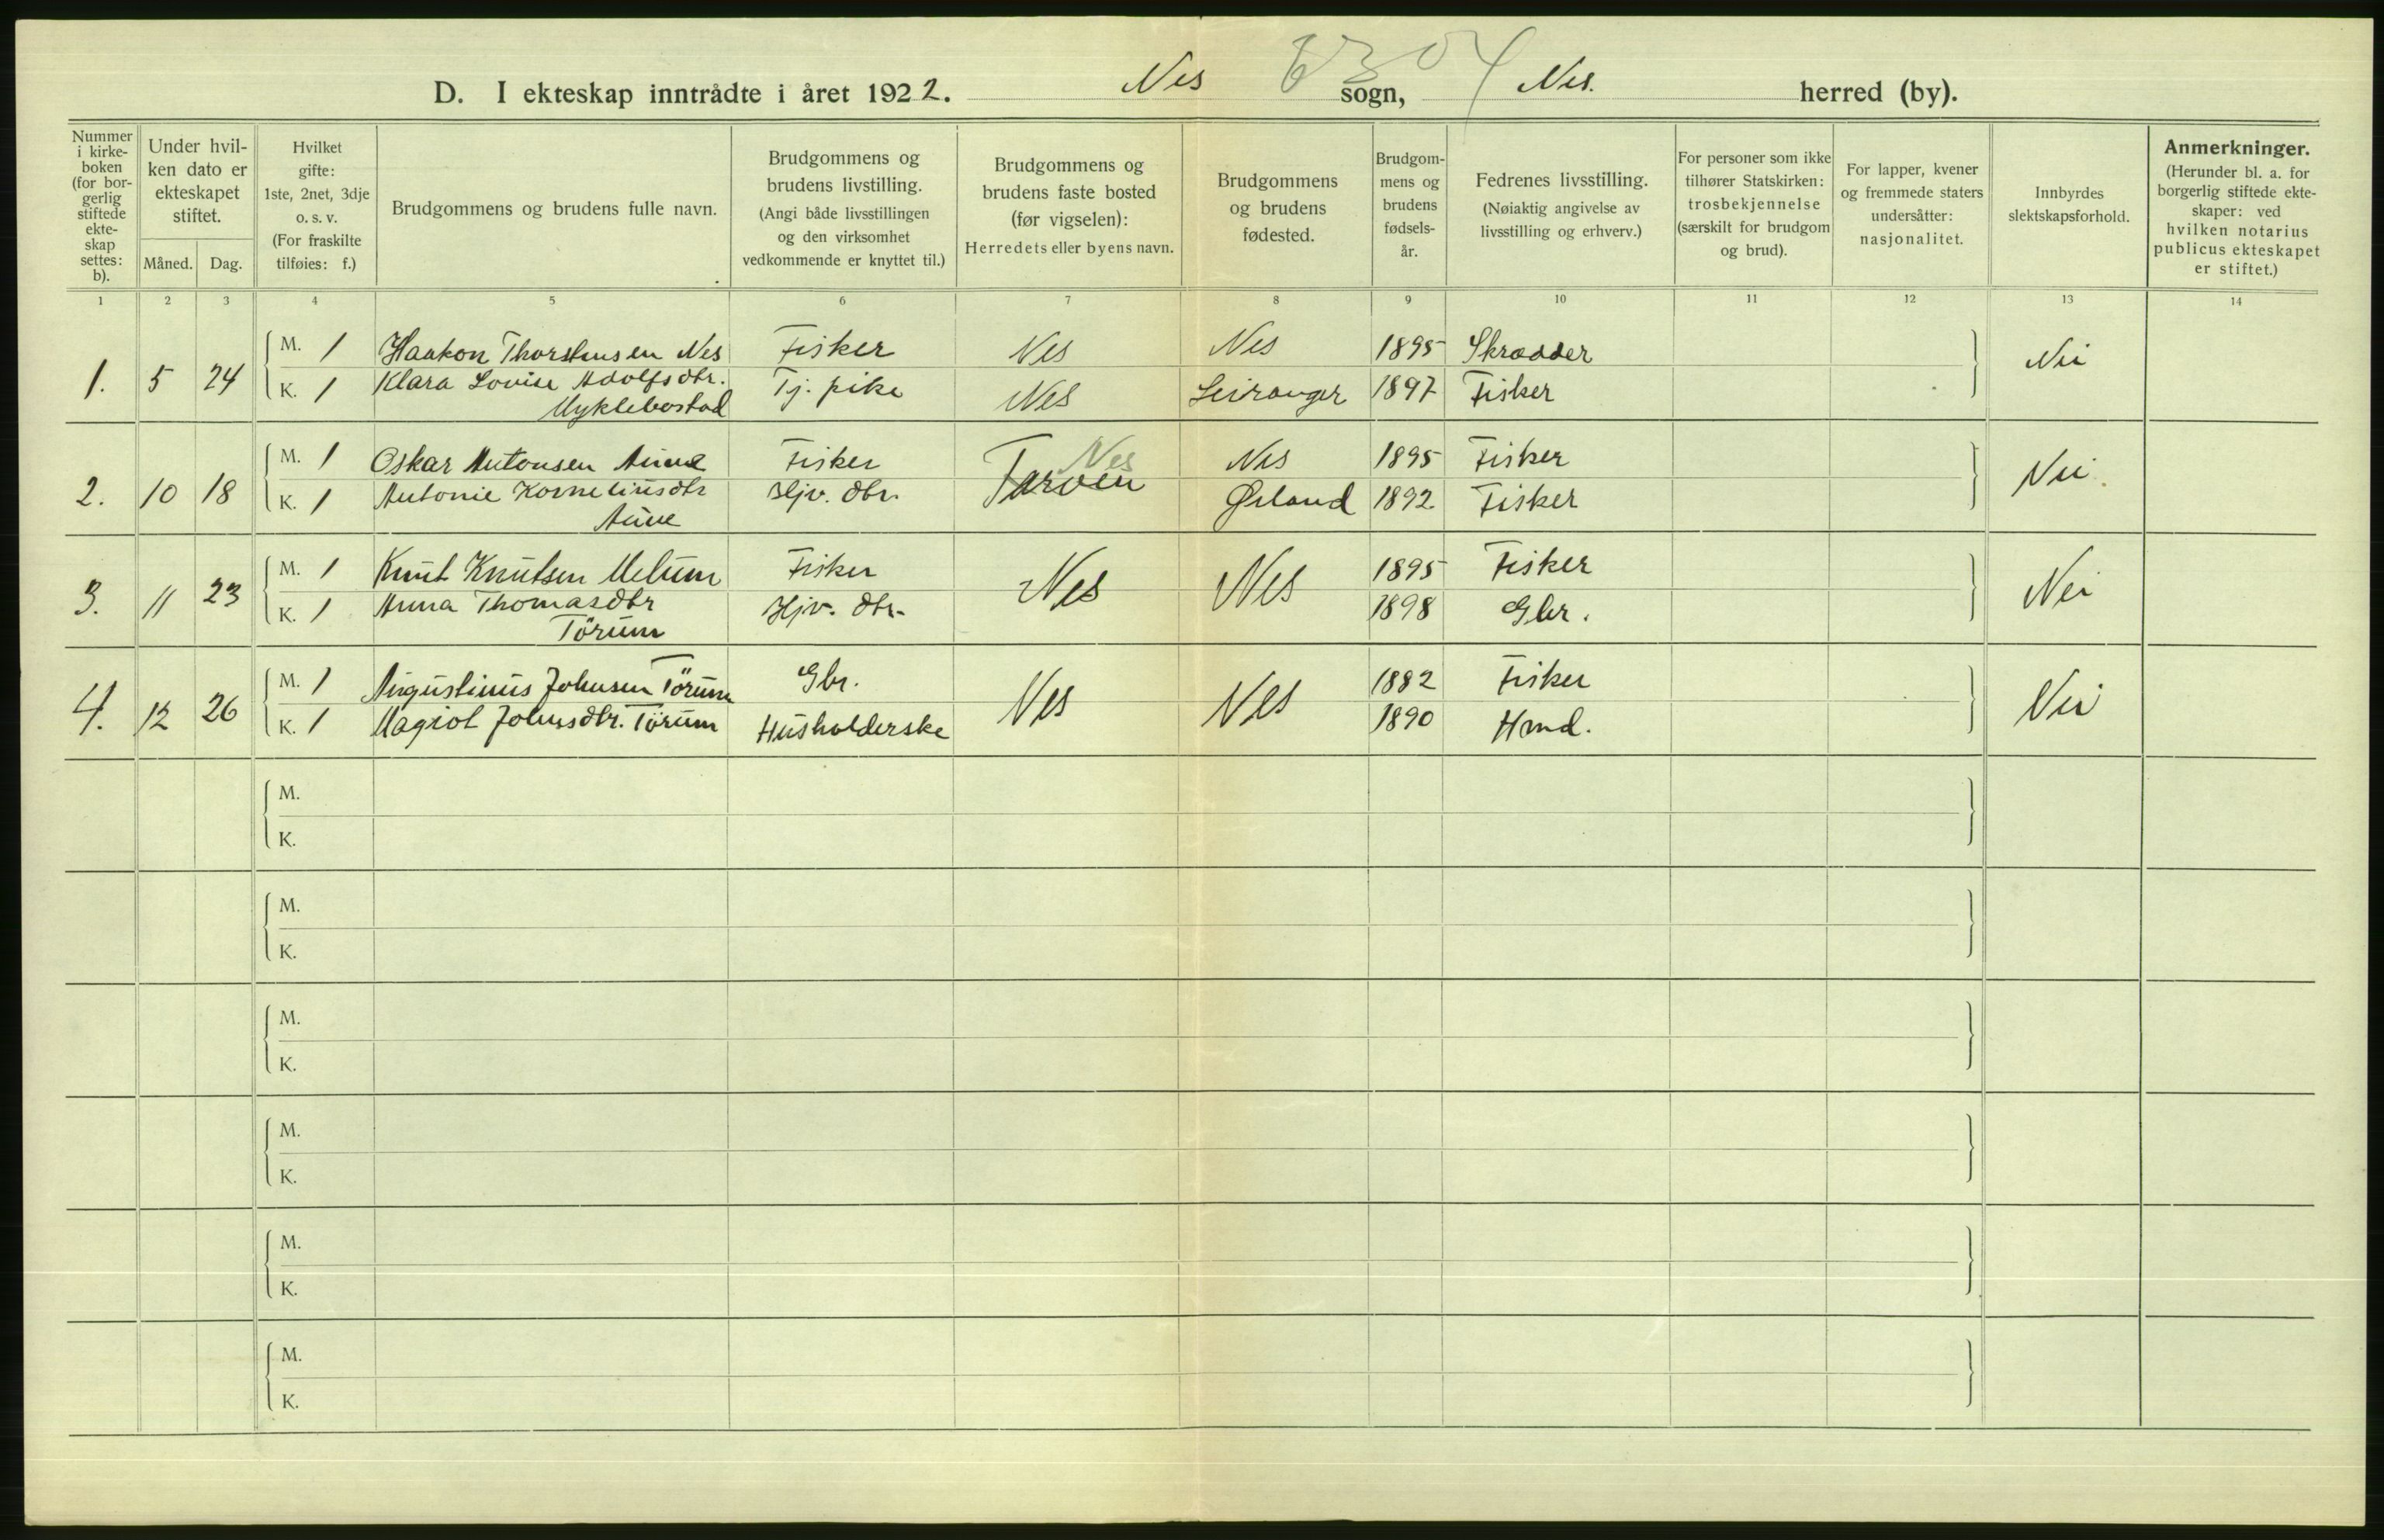 6304
D. I ekteskap inntrådte i året 1922. Nes sogn, Nes. herred (by).
Nummer i kirke-boken (for bor-gerlig stiftede ekte-skap settes: b).
Under hvil-ken dato er ekteskapet stiftet.
Måned. Dag.
Hvilket gifte: 1ste, 2net, 3dje o. s. v. (For fraskilte tilføies: f.)
Brudgommens og brudens fulle navn.
Brudgommens og brudens livstilling. (Angi både livsstillingen og den virksomhet vedkommende er knyttet til.)
Brudgommens og brudens faste bosted (før vigselen): Herredets eller byens navn.
Brudgommens og brudens fødested.
Brudgom-mens og brudens fødsels-år.
Fedrenes livsstilling. (Nøiaktig angivelse av livsstilling og erhverv.)
For personer som ikke tilhører Statskirken: trosbekjennelse (særskilt for brudgom og brud).
For lapper, kvener og fremmede staters undersåtter: nasjonalitet.
Innbyrdes slektskapsforhold.
Anmerkninger. (Herunder bl. a. for borgerlig stiftede ekte-skaper: ved hvilken notarius publicus ekteskapet er stiftet.)
1 2 3 4 5 6 7 8 9 10 11 12 13 14
1. 5 24 M. 1 Haakon Thorstensen Nes Fisker Nes Nes 1895 Skrædder Nei
K. 1 Klara Lovise Adolfsdtr. Tj. pike Nes Leiranger 1897 Fisker
Myklebostad
2. 10 18 M. 1 Oskar Antonsen Aune Fisker Tarven Nes Nes 1895 Fisker Nei
K. 1 Antonie Korneliusdtr Hjv. dtr. Ørland 1892 Fisker
Aune
3. 11 23 M. 1 Knut Knutsen Melum Fisker Nes Nes 1895 Fisker Nei
K. 1 Anna Thomasdtr Hjv. dtr. 1898 Gbr.
Törum
4. 12 26 M. 1 Augustinus Johnsen Törum Gbr. Nes Nes 1882 Fisker Nei
K. 1 Magiot Johnsdtr. Törum Husholderske 1890 Hmd.
M.
K.
M.
K.
M.
K.
M.
K.
M.
K.
M.
K.